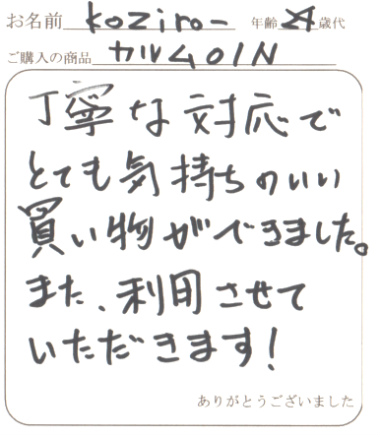 お名前 koziro- 年齢 歳代
ご購入の商品 カルム01N
丁寧な対応で
とても気持ちのいい
買い物ができました。
また、利用させて
いただきます!
ありがとうございました